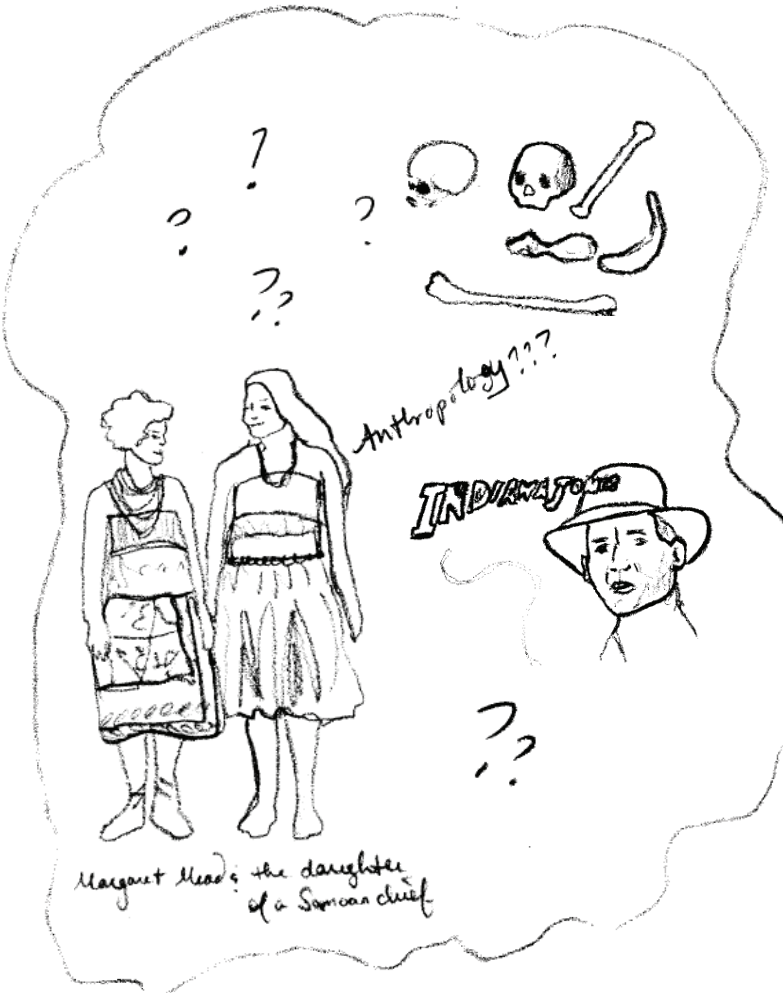 ?
? ?
??
Anthropology???
INDIANA JONES
??
Margaret Mead & the daughter
of a Samoan chief